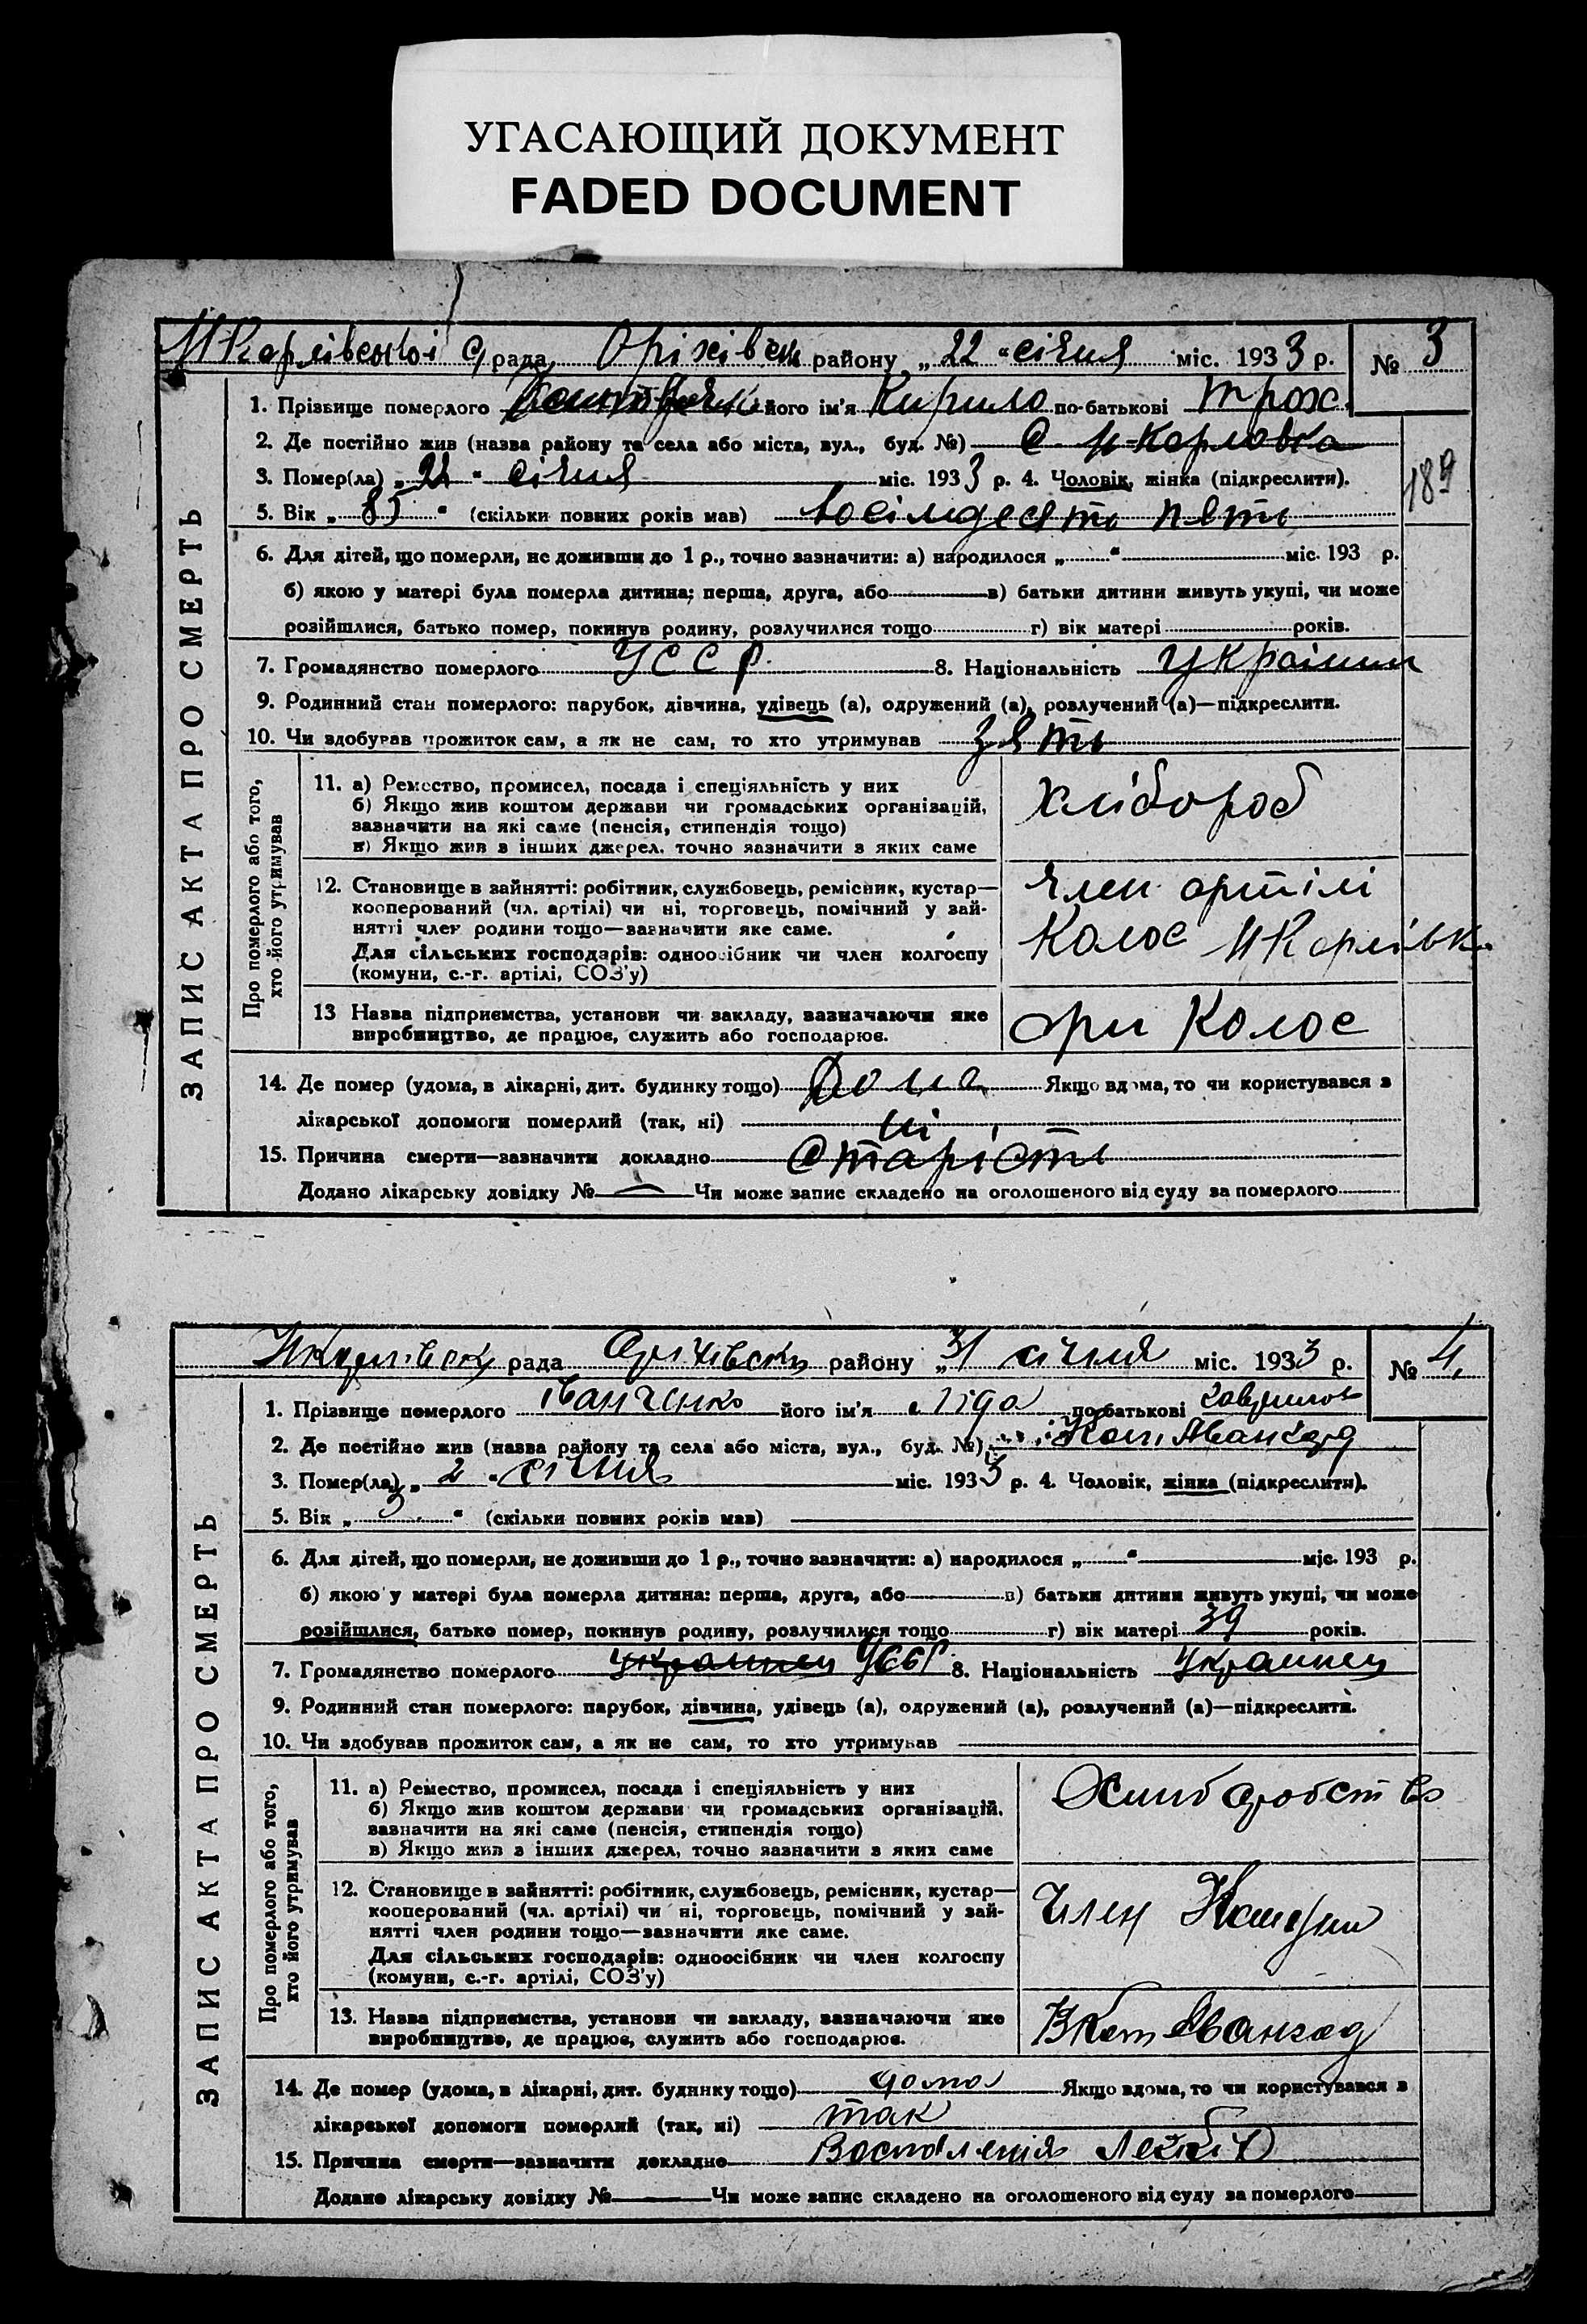 УГАСАЮЩИЙ ДОКУМЕНТ
FADED DOCUMENT
НКарлівської С/рада Оріхівськ району „22“ січня міс. 1933 р. № 3
1. Прізвище померлого його ім'я Кирило по-батькові Трох.
2. Де постійно жив (назва району та села або міста, вул., буд. №) С Н-Карловка
3. Помер(ла) „21“ січня міс. 1933 р. 4. Чоловік, жінка (підкреслити).
189
5. Вік „85“ (скільки повних років мав) Восімдесять пять
6. Для дітей, що померли, не доживши до 1 р., точно зазначити: а) народилося „ “ міс. 193 р.
б) якою у матері була померла дитина; перша, друга, або в) батьки дитини живуть укупі, чи може
розійшлися, батько помер, покинув родину, розлучилися тощо г) вік матері років.
7. Громадянство померлого УССР 8. Національність Українец
9. Родинний стан померлого: парубок, дівчина, удівець (а), одружений (а), розлучений (а)—підкреслити.
10. Чи здобував прожиток сам, а як не сам, то хто утримував зять
ЗАПИС АКТА ПРО СМЕРТЬ
Про померлого або того,
хто його утримував
11. а) Ремество, промисел, посада і спеціяльність у них
б) Якщо жив коштом держави чи громадських організацій,
зазначити на які саме (пенсія, стипендія тощо)
в) Якщо жив з інших джерел, точно зазначити з яких саме
Хлібороб
12. Становище в зайнятті: робітник, службовець, ремісник, кустар—
кооперований (чл. артілі) чи ні, торговець, помічний у зай-
нятті член родини тощо—зазначити яке саме.
Для сільських господарів: одноосібник чи член колгоспу
(комуни, с.-г. артілі, СОЗ'у)
Член артілі
Колос НКарлівк
13 Назва підприємства, установи чи закладу, зазначаючи яке
виробництво, де працює, служить або господарює.
арт Колос
14. Де помер (удома, в лікарні, дит. будинку тощо) Дома Якщо вдома, то чи користувався з
лікарської допомоги померлий (так, ні) ні
15. Причина смерти—зазначити докладно Старість
Додано лікарську довідку № — Чи може запис складено на оголошеного від суду за померлого
Нкарлівськ рада Оріхівськ району „31 січня міс. 1933 р. № 4
1. Прізвище померлого Іванченко його ім'я Ліда по-батькові Гаврилов
2. Де постійно жив (назва району та села або міста, вул., буд. №) Ком. Авангард
3. Помер(ла) „2“ січня міс. 1933 р. 4. Чоловік, жінка (підкреслити).
5. Вік „3“ (скільки повних років мав)
6. Для дітей, що померли, не доживши до 1 р., точно зазначити: а) народилося „ “ міс. 193 р.
б) якою у матері була померла дитина: перша, друга, або в) батьки дитини живуть укупі, чи може
розійшлися, батько помер, покинув родину, розлучилися тощо г) вік матері 39 років.
7. Громадянство померлого украинец УССР 8. Національність Украинец
9. Родинний стан померлого: парубок, дівчина, удівець (а), одружений (а), розлучений (а)—підкреслити.
10. Чи здобував прожиток сам, а як не сам, то хто утримував
ЗАПИС АКТА ПРО СМЕРТЬ
Про померлого або того,
хто його утримував
11. а) Ремество, промисел, посада і спеціяльність у них
б) Якщо жив коштом держави чи громадських організацій,
зазначити на які саме (пенсія, стипендія тощо)
в) Якщо жив з інших джерел, точно зазначити з яких саме
12. Становище в зайнятті: робітник, службовець, ремісник, кустар—
кооперований (чл. артілі) чи ні, торговець, помічний у зай-
нятті член родини тощо—зазначити яке саме.
Для сільських господарів: одноосібник чи член колгоспу
(комуни, с.-г. артілі, СОЗ'у)
Член
13. Назва підприємства, установи чи закладу, зазначаючи яке
виробництво, де працює, служить або господарює.
14. Де помер (удома, в лікарні, дит. будинку тощо) дома Якщо вдома, то чи користувався з
лікарської допомоги померлий (так, ні) так
15. Причина смерти—зазначити докладно Воспаления
Додано лікарську довідку № Чи може запис складено на оголошеного від суду за померлого